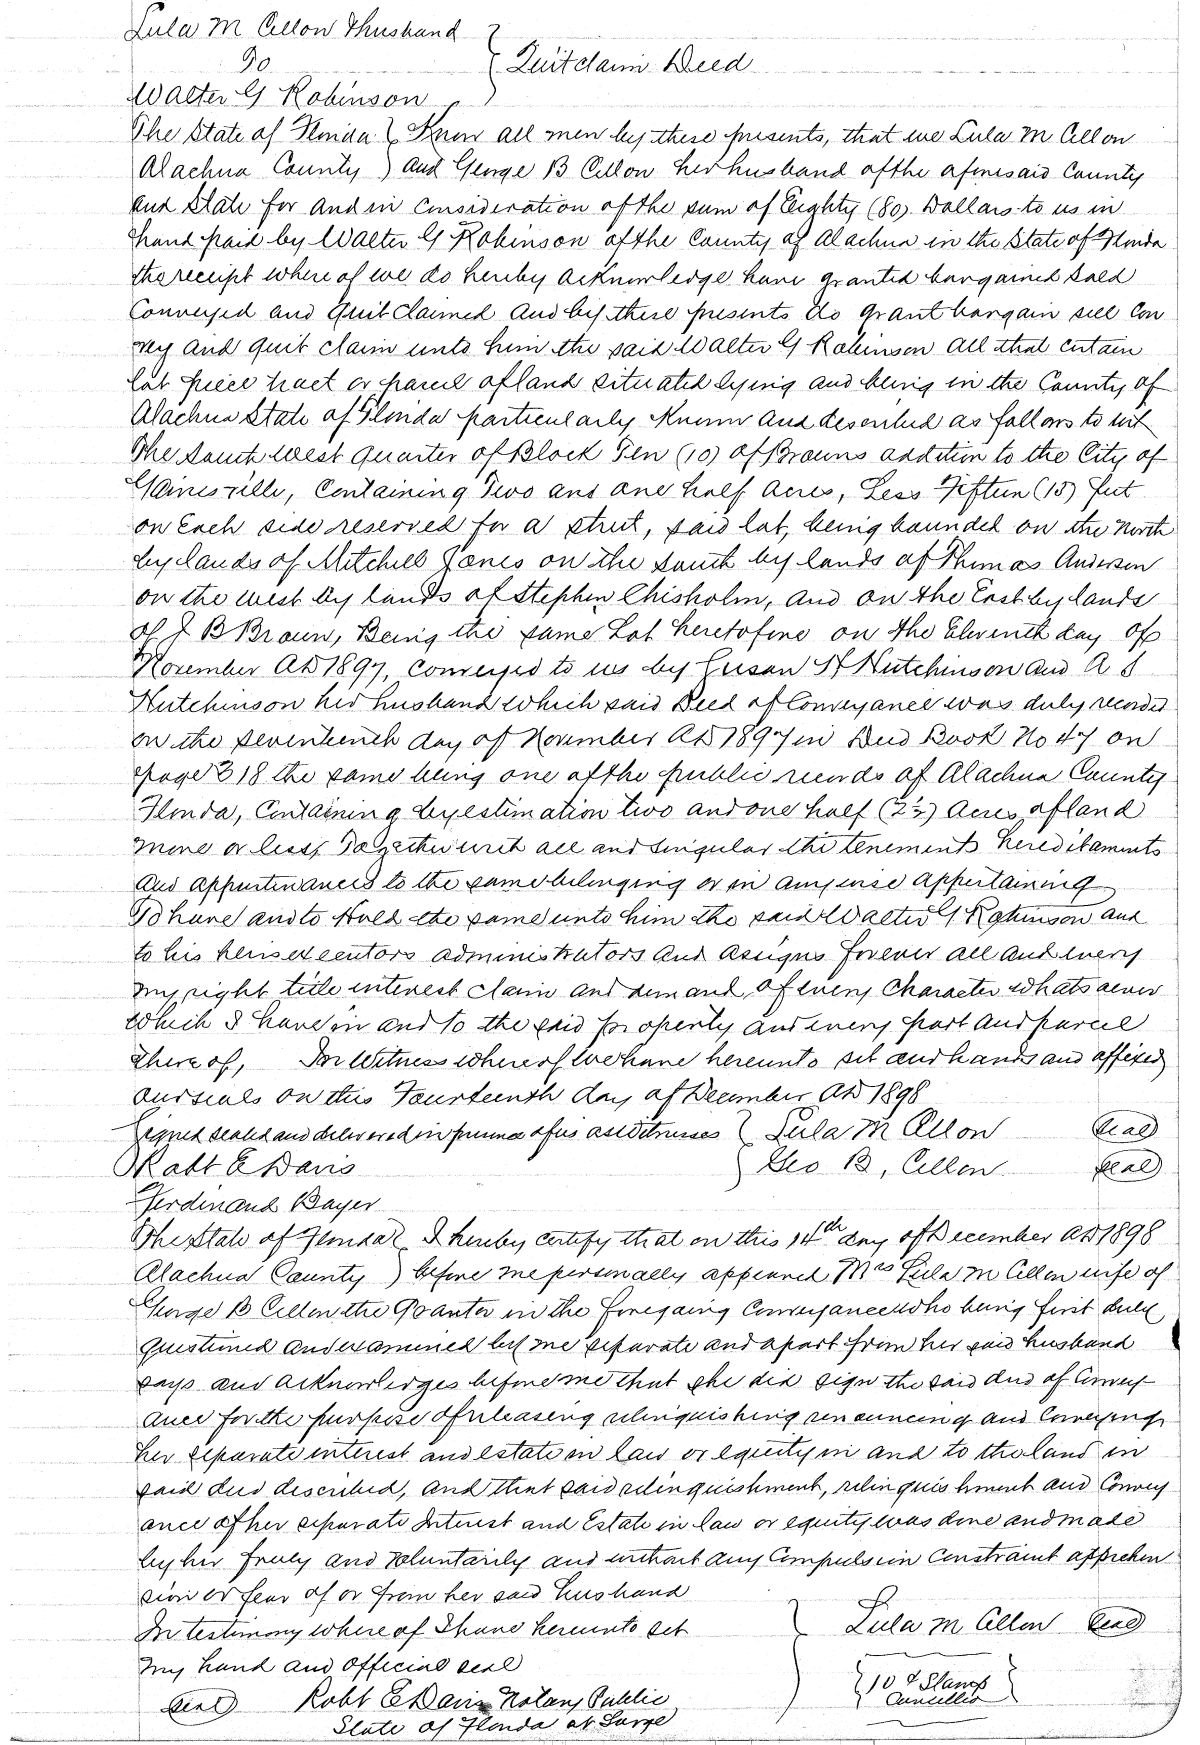 Lula M Cellon & husband
To } Quitclaim Deed
Walter G Robinson
The State of Florida } Know all men by these presents, that we Lula M Cellon
Alachua County ) and George B Cellon her husband of the aforesaid County
and State for and in consideration of the sum of Eighty (80) Dollars to us in
hand paid by Walter G Robinson of the County of Alachua in the State of Florida
the receipt where of we do hereby acknowledge have granted bargained sold
Conveyed and Quit Claimed and by these presents do grant bargain sell Con
vey and quit claim unto him the said Walter G Robinson all that certain
lot piece tract or parcel of land situated lying and being in the County of
Alachua State of Florida particularly Known and described as follows to wit
The South west Quarter of Block Ten (10) of Browns addition to the City of
Gainesville, Containing Two and one half Acres, Less Fifteen (15) feet
on Each side reserved for a street, said lot, being bounded on the North
by lands of Mitchell Jones on the South by lands of Thomas Anderson
on the west by lands of Stephen Chisholm, and on the East by lands
of J B Brown, Being the same Lot heretofore on the Eleventh day of
November AD 1897, conveyed to us by Susan H Hutchinson and A S
Hutchinson her husband which said Deed of Conveyance was duly recorded
on the seventeenth day of November AD 1897 in Deed Book No 47 on
page 318 the same being one of the public records of Alachua County
Florida, Containing by estimation two and one half (2½) Acres of land
more or less, Together with all and singular the tenements hereditaments
and appurtenances to the same belonging or in any wise appertaining
To have and to Hold the same unto him the said Walter G Robinson and
to his heirs executors administrators and assigns forever all and every
my right title interest claim and demand, of every Character whatsoever
which I have in and to the said property and every part and parcel
there of, In Witness where of we have hereunto set our hands and affixed
our seals on this Fourteenth day of December AD 1898
Signed sealed and delivered in presence of us as witnesses } Lula M Cellon (Seal)
Robt E Davis } Geo B, Cellon (Seal)
Ferdinand Bayer
The State of Florida } I hereby certify that on this 14th day of December AD 1898
Alachua County ) before me personally appeared Mrs Lula M Cellon wife of
George B Cellon the Grantor in the foregoing Conveyance who being first duly
questioned and examined by me separate and apart from her said husband
says and acknowledges before me that she did sign the said deed of Convey
ance for the purpose of releasing relinquishing renouncing and Conveying
her separate interest and estate in law or equity in and to the land in
said deed described, and that said relinquishment, relinquishment and Convey
ance of her separate Interest and Estate in law or equity was done and made
by her freely and voluntarily and without any Compulsion constraint apprehen
sion or fear of or from her said husband
In testimony where of I have hereunto set } Lula M Cellon (Seal)
my hand and official seal
(Seal) Robt E Davis Notary Public { 10 ¢ Stamp Cancelled }
State of Florida at Large